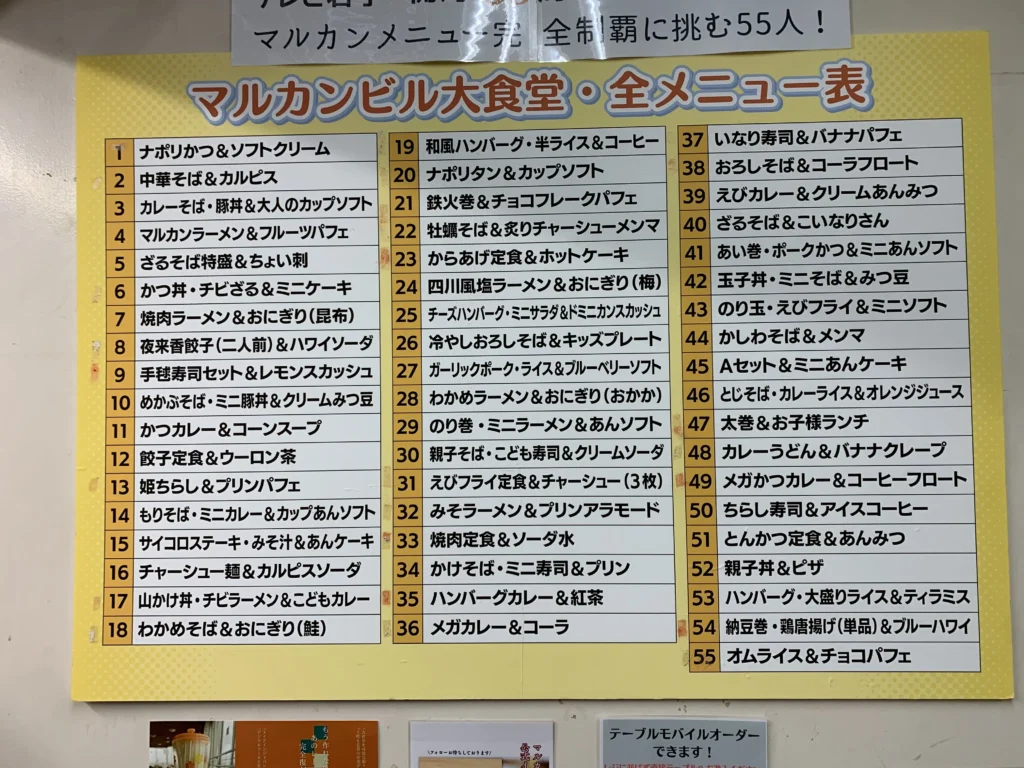 マルカンメニュー完 全制覇に挑む55人！
マルカンビル大食堂・全メニュー表
1 ナポリかつ＆ソフトクリーム
2 中華そば＆カルピス
3 カレーそば・豚丼＆大人のカップソフト
4 マルカンラーメン＆フルーツパフェ
5 ざるそば特盛＆ちょい刺
6 かつ丼・チビざる＆ミニケーキ
7 焼肉ラーメン＆おにぎり(昆布)
8 夜来香餃子(二人前)＆ハワイソーダ
9 手毬寿司セット＆レモンスカッシュ
10 めかぶそば・ミニ豚丼＆クリームみつ豆
11 かつカレー＆コーンスープ
12 餃子定食＆ウーロン茶
13 姫ちらし＆プリンパフェ
14 もりそば・ミニカレー＆カップあんソフト
15 サイコロステーキ・みそ汁＆あんケーキ
16 チャーシュー麺＆カルピスソーダ
17 山かけ丼・チビラーメン＆こどもカレー
18 わかめそば＆おにぎり(鮭)
19 和風ハンバーグ・半ライス＆コーヒー
20 ナポリタン＆カップソフト
21 鉄火巻＆チョコフレークパフェ
22 牡蠣そば＆炙りチャーシューメンマ
23 からあげ定食＆ホットケーキ
24 四川風塩ラーメン＆おにぎり(梅)
25 チーズハンバーグ・ミニサラダ＆ドミニカンスカッシュ
26 冷やしおろしそば＆キッズプレート
27 ガーリックポーク・ライス＆ブルーベリーソフト
28 わかめラーメン＆おにぎり(おかか)
29 のり巻・ミニラーメン＆あんソフト
30 親子そば・こども寿司＆クリームソーダ
31 えびフライ定食＆チャーシュー(3枚)
32 みそラーメン＆プリンアラモード
33 焼肉定食＆ソーダ水
34 かけそば・ミニ寿司＆プリン
35 ハンバーグカレー＆紅茶
36 メガカレー＆コーラ
37 いなり寿司＆バナナパフェ
38 おろしそば＆コーラフロート
39 えびカレー＆クリームあんみつ
40 ざるそば＆こいなりさん
41 あい巻・ポークかつ＆ミニあんソフト
42 玉子丼・ミニそば＆みつ豆
43 のり玉・えびフライ＆ミニソフト
44 かしわそば＆メンマ
45 Aセット＆ミニあんケーキ
46 とじそば・カレーライス＆オレンジジュース
47 太巻＆お子様ランチ
48 カレーうどん＆バナナクレープ
49 メガかつカレー＆コーヒーフロート
50 ちらし寿司＆アイスコーヒー
51 とんかつ定食＆あんみつ
52 親子丼＆ピザ
53 ハンバーグ・大盛りライス＆ティラミス
54 納豆巻・鶏唐揚げ(単品)＆ブルーハワイ
55 オムライス＆チョコパフェ
テーブルモバイルオーダー
できます！